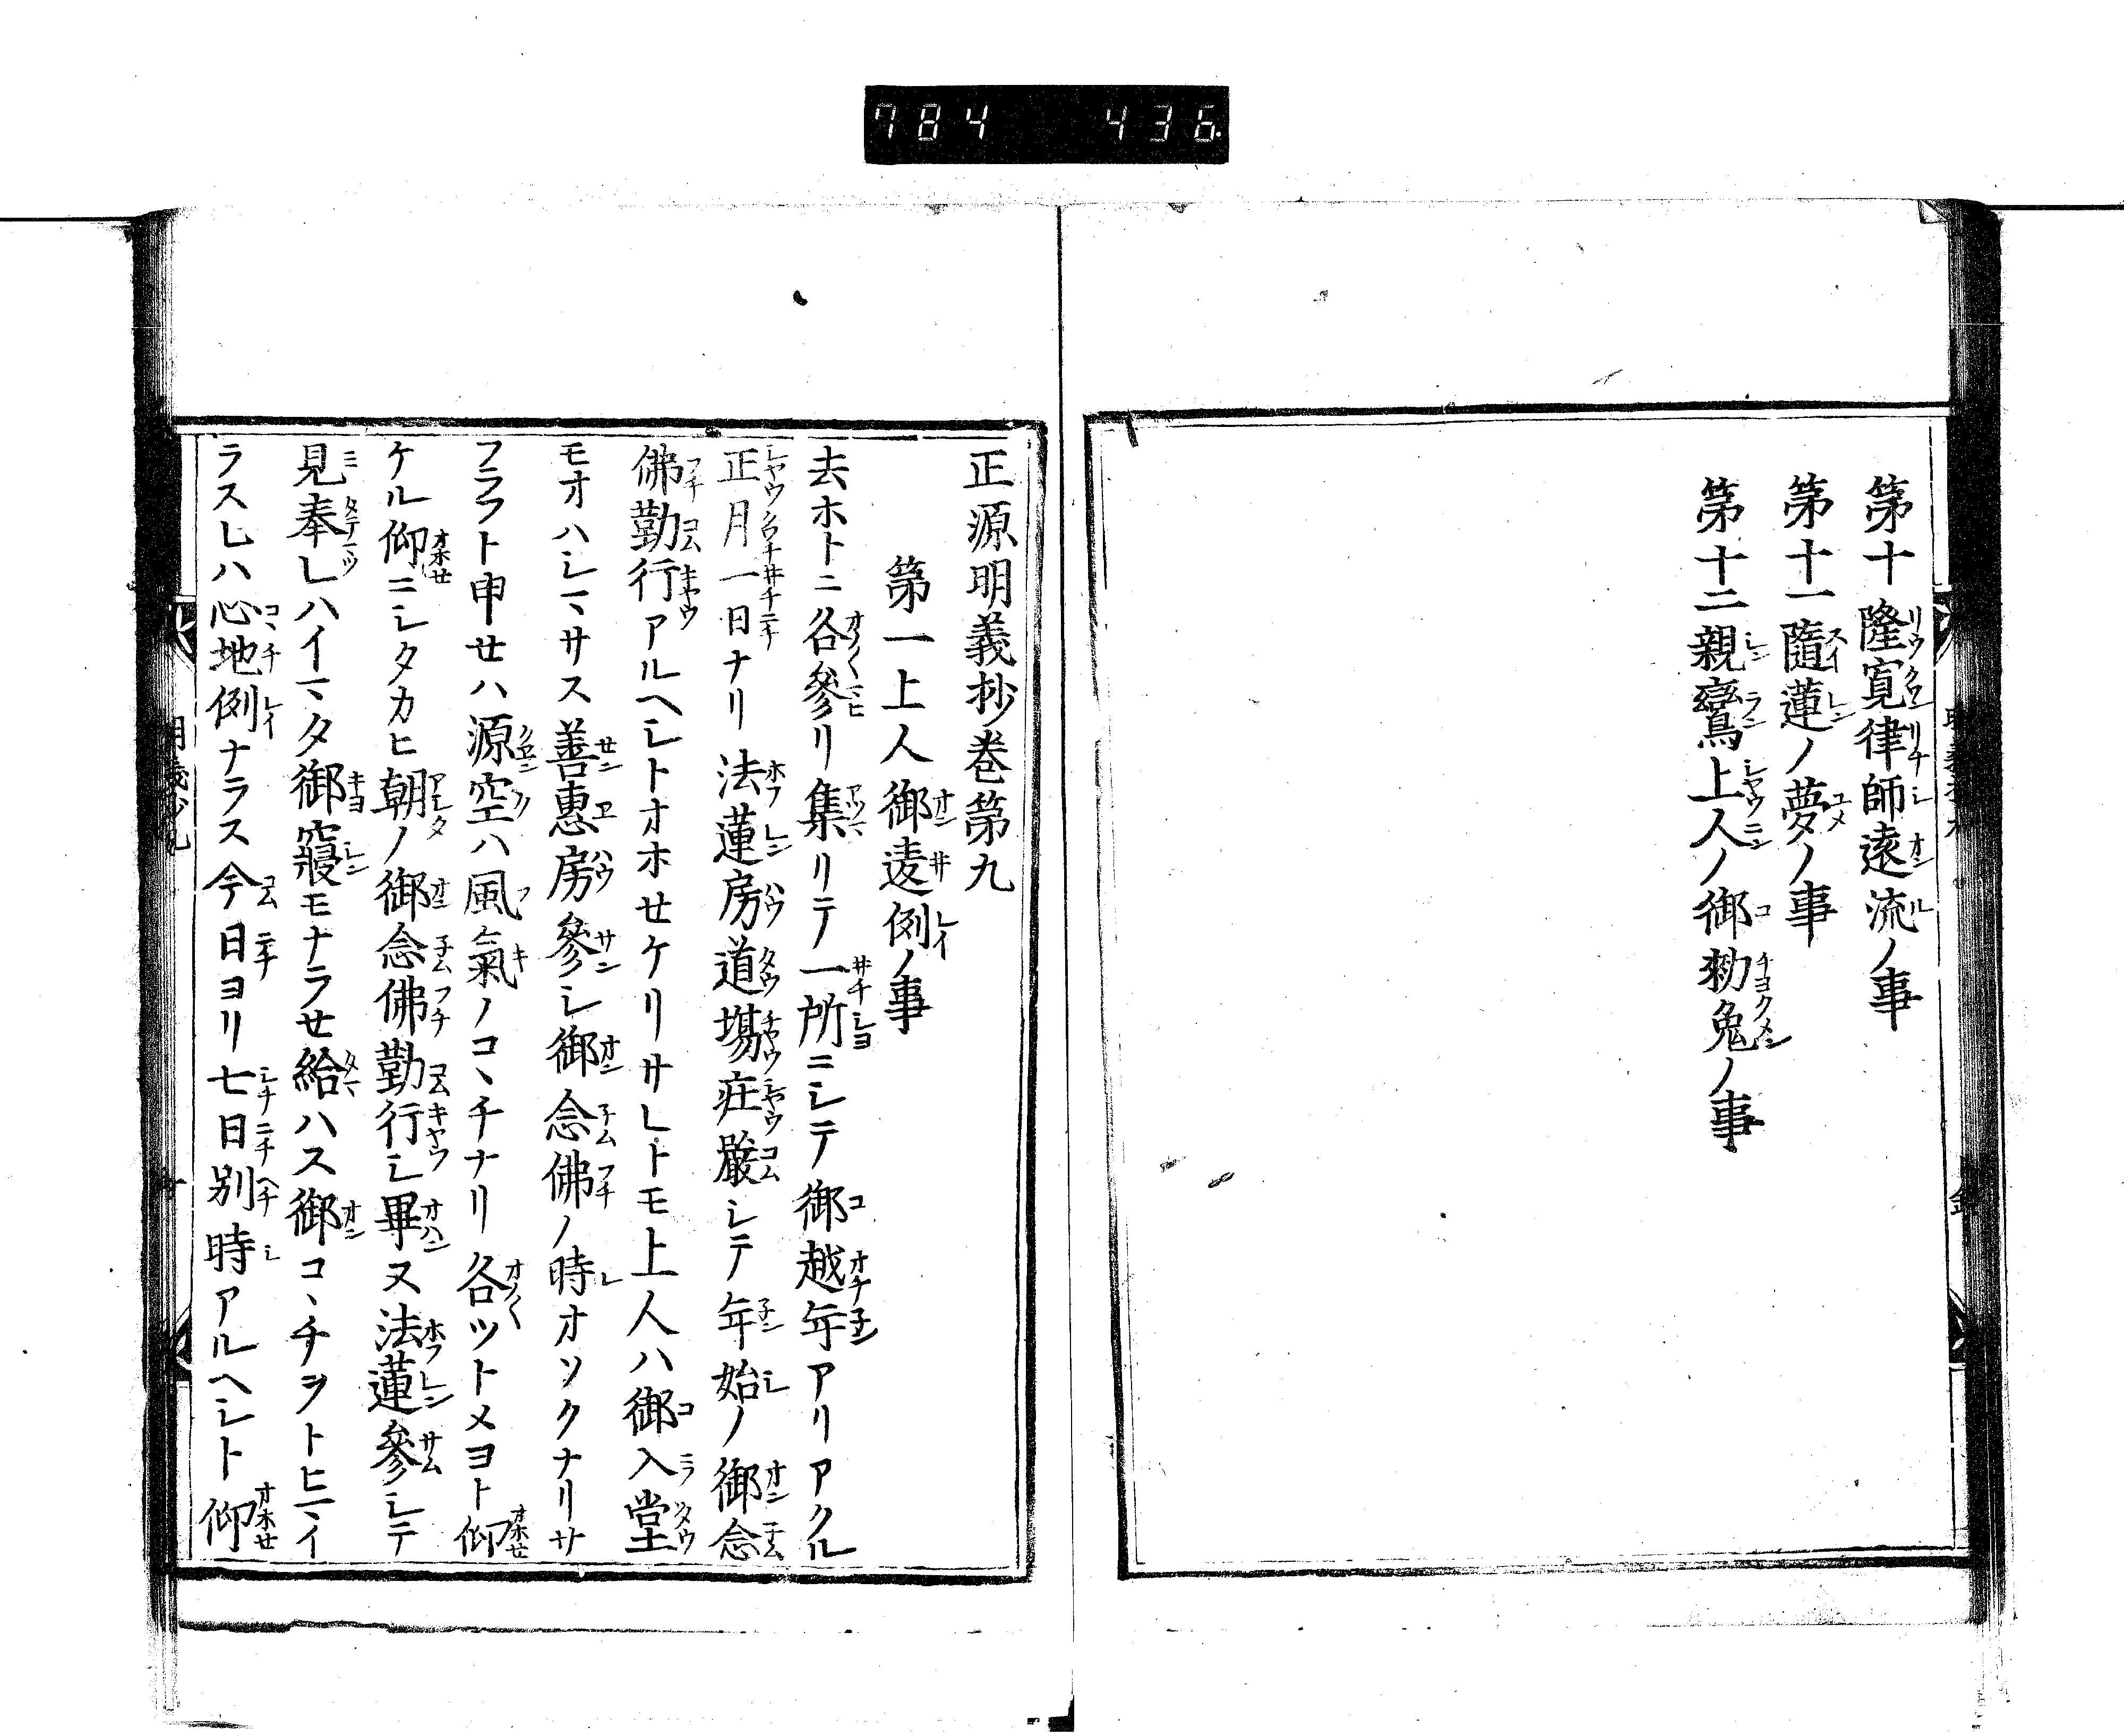 784 436
第十隆寛律師遠流ノ事
第十一隨蓮ノ夢ノ事
第十二親鸞上人ノ御勑免ノ事
正源明義抄巻第九
第一上人御違例ノ事
去ホトニ各參リ集リテ一所ニシテ御越年アリアクル
正月一日ナリ法蓮房道場莊嚴シテ年始ノ御念
佛勤行アルヘシトオホセケリサレトモ上人ハ御入堂
モオハシマサス善惠房參シ御念佛ノ時オソクナリサ
フラフト申せハ源空ハ風氣ノコヽチナリ各ツトメヨト仰
ケル仰ニシタカヒ朝ノ御念佛勤行シ畢ヌ法蓮參シテ
見奉レハイマタ御寢モナラせ給ハス御コヽチヲトヒマイ
ラスレハ心地例ナラス今日ヨリ七日別時アルヘシト仰